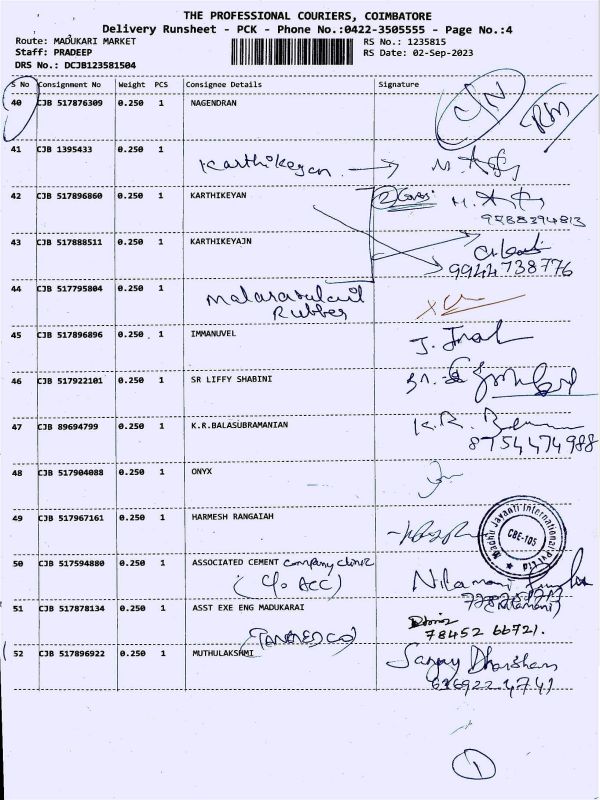 THE PROFESSIONAL COURIERS, COIMBATORE
Delivery Runsheet - PCK - Phone No.:0422-3505555 - Page No.:4
Route: MADUKARI MARKET RS No.: 1235815
Staff: PRADEEP RS Date: 02-Sep-2023
DRS No.: DCJB123581504
S No Consignment No Weight PCS Consignee Details Signature
40 CJB 517876309 0.250 1 NAGENDRAN C/N RM
41 CJB 1395433 0.250 1 Karthikeyan
42 CJB 517896860 0.250 1 KARTHIKEYAN
43 CJB 517888511 0.250 1 KARTHIKEYAJN
9944738776
44 CJB 517795804 0.250 1
Rubber
45 CJB 517896896 0.250 1 IMMANUVEL
46 CJB 517922101 0.250 1 SR LIFFY SHABINI
47 CJB 89694799 0.250 1 K.R.BALASUBRAMANIAN K.R.
8754474988
48 CJB 517904088 0.250 1 ONYX
49 CJB 517967161 0.250 1 HARMESH RANGAIAH
Madhu Jayanti International Pvt Ltd
CBE-105
50 CJB 517594880 0.250 1 ASSOCIATED CEMENT company clinic Nilamani
(C/o ACC)
(Nilamani)
51 CJB 517878134 0.250 1 ASST EXE ENG MADUKARAI
78452 66721.
(TANGEDCO)
52 CJB 517896922 0.250 1 MUTHULAKSHMI Sanjay Dharshan
1